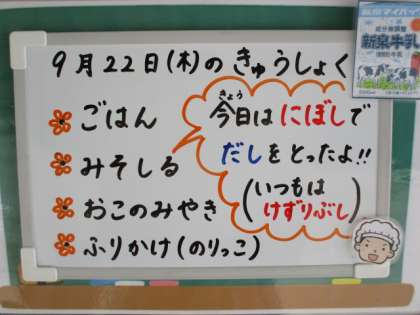 9月22日(木)のきゅうしょく
ごはん
みそしる
おこのみやき
ふりかけ(のりっこ)
きょう
今日はにぼしで
だしをとったよ!!
(いつもは
けずりぶし)
新泉牛乳